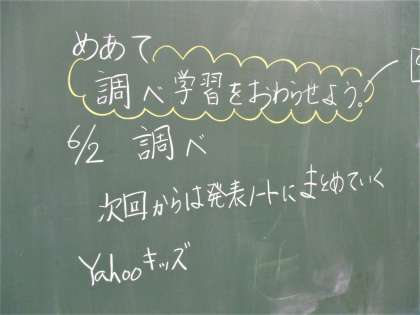 めあて
調べ学習をおわらせよう。
6/2 調べ
次回からは発表ノートにまとめていく
Yahooキッズ